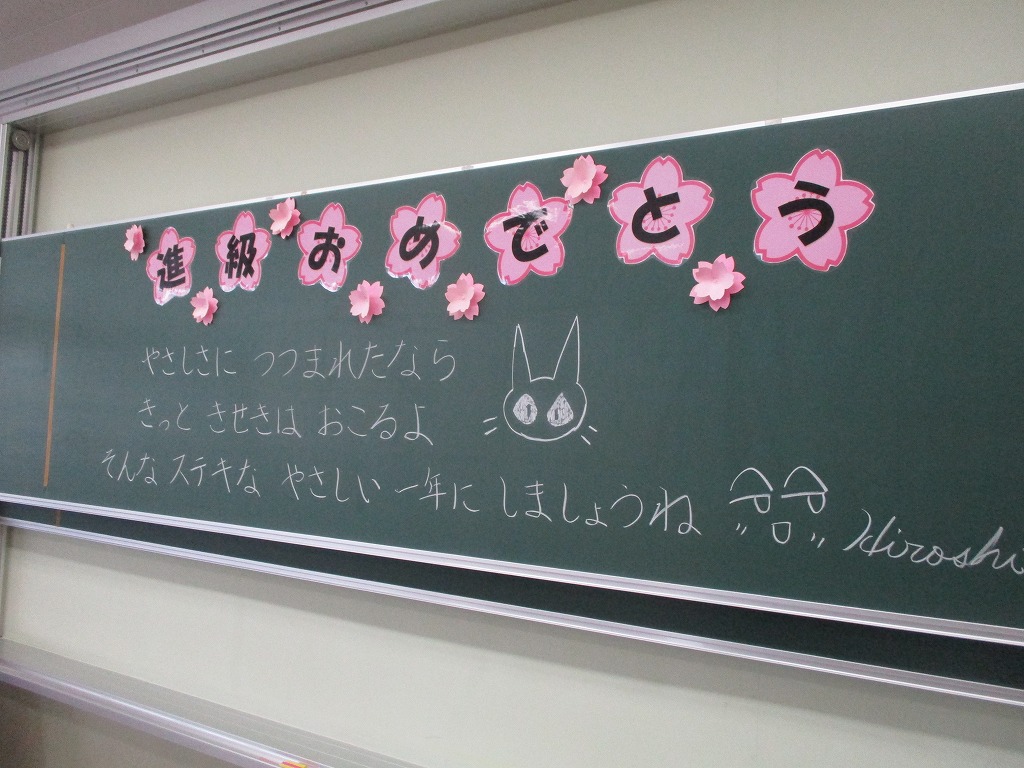 進級おめでとう
やさしさに つつまれたなら
きっと きせきは おこるよ
そんな ステキな やさしい 一年に しましょうね
Hiroshi